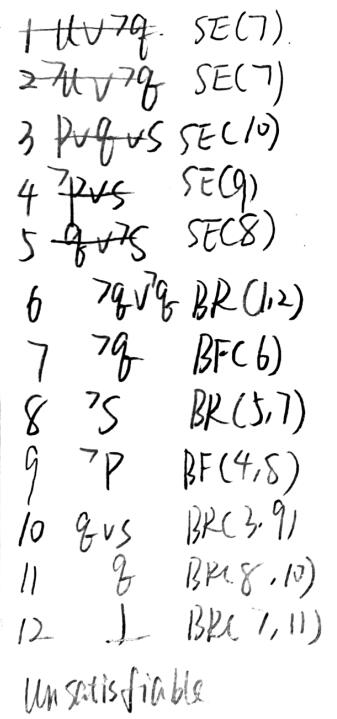 1 u∨¬q SE(7).
2 ¬u∨¬q SE(7)
3 p∨q∨s SE(10)
4 ¬p∨s SE(9)
5 q∨¬s SE(8)
6 ¬q∨¬q BR(1,2)
7 ¬q BF(6)
8 ¬s BR(5,7)
9 ¬p BF(4,8)
10 q∨s BR(3.9)
11 q BR(8,10)
12 ⊥ BR(7,11)
unsatisfiable